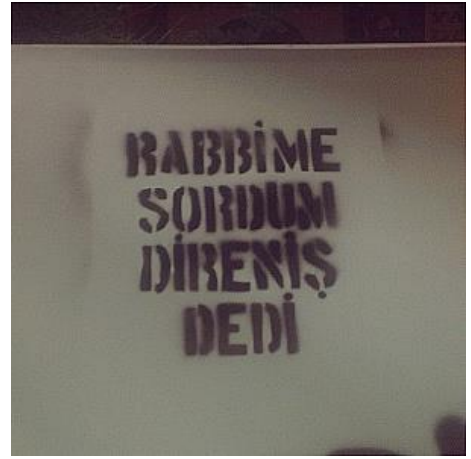 RABBİME
SORDUM
DİRENİŞ
DEDİ